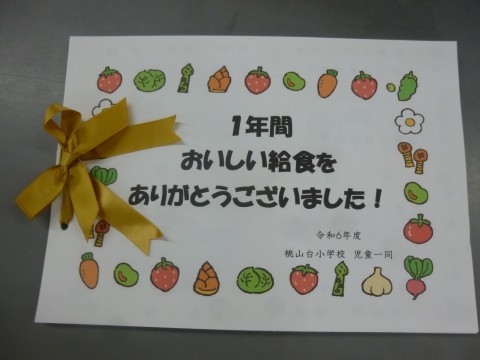 １年間
おいしい給食を
ありがとうございました！
令和６年度
桃山台小学校 児童一同